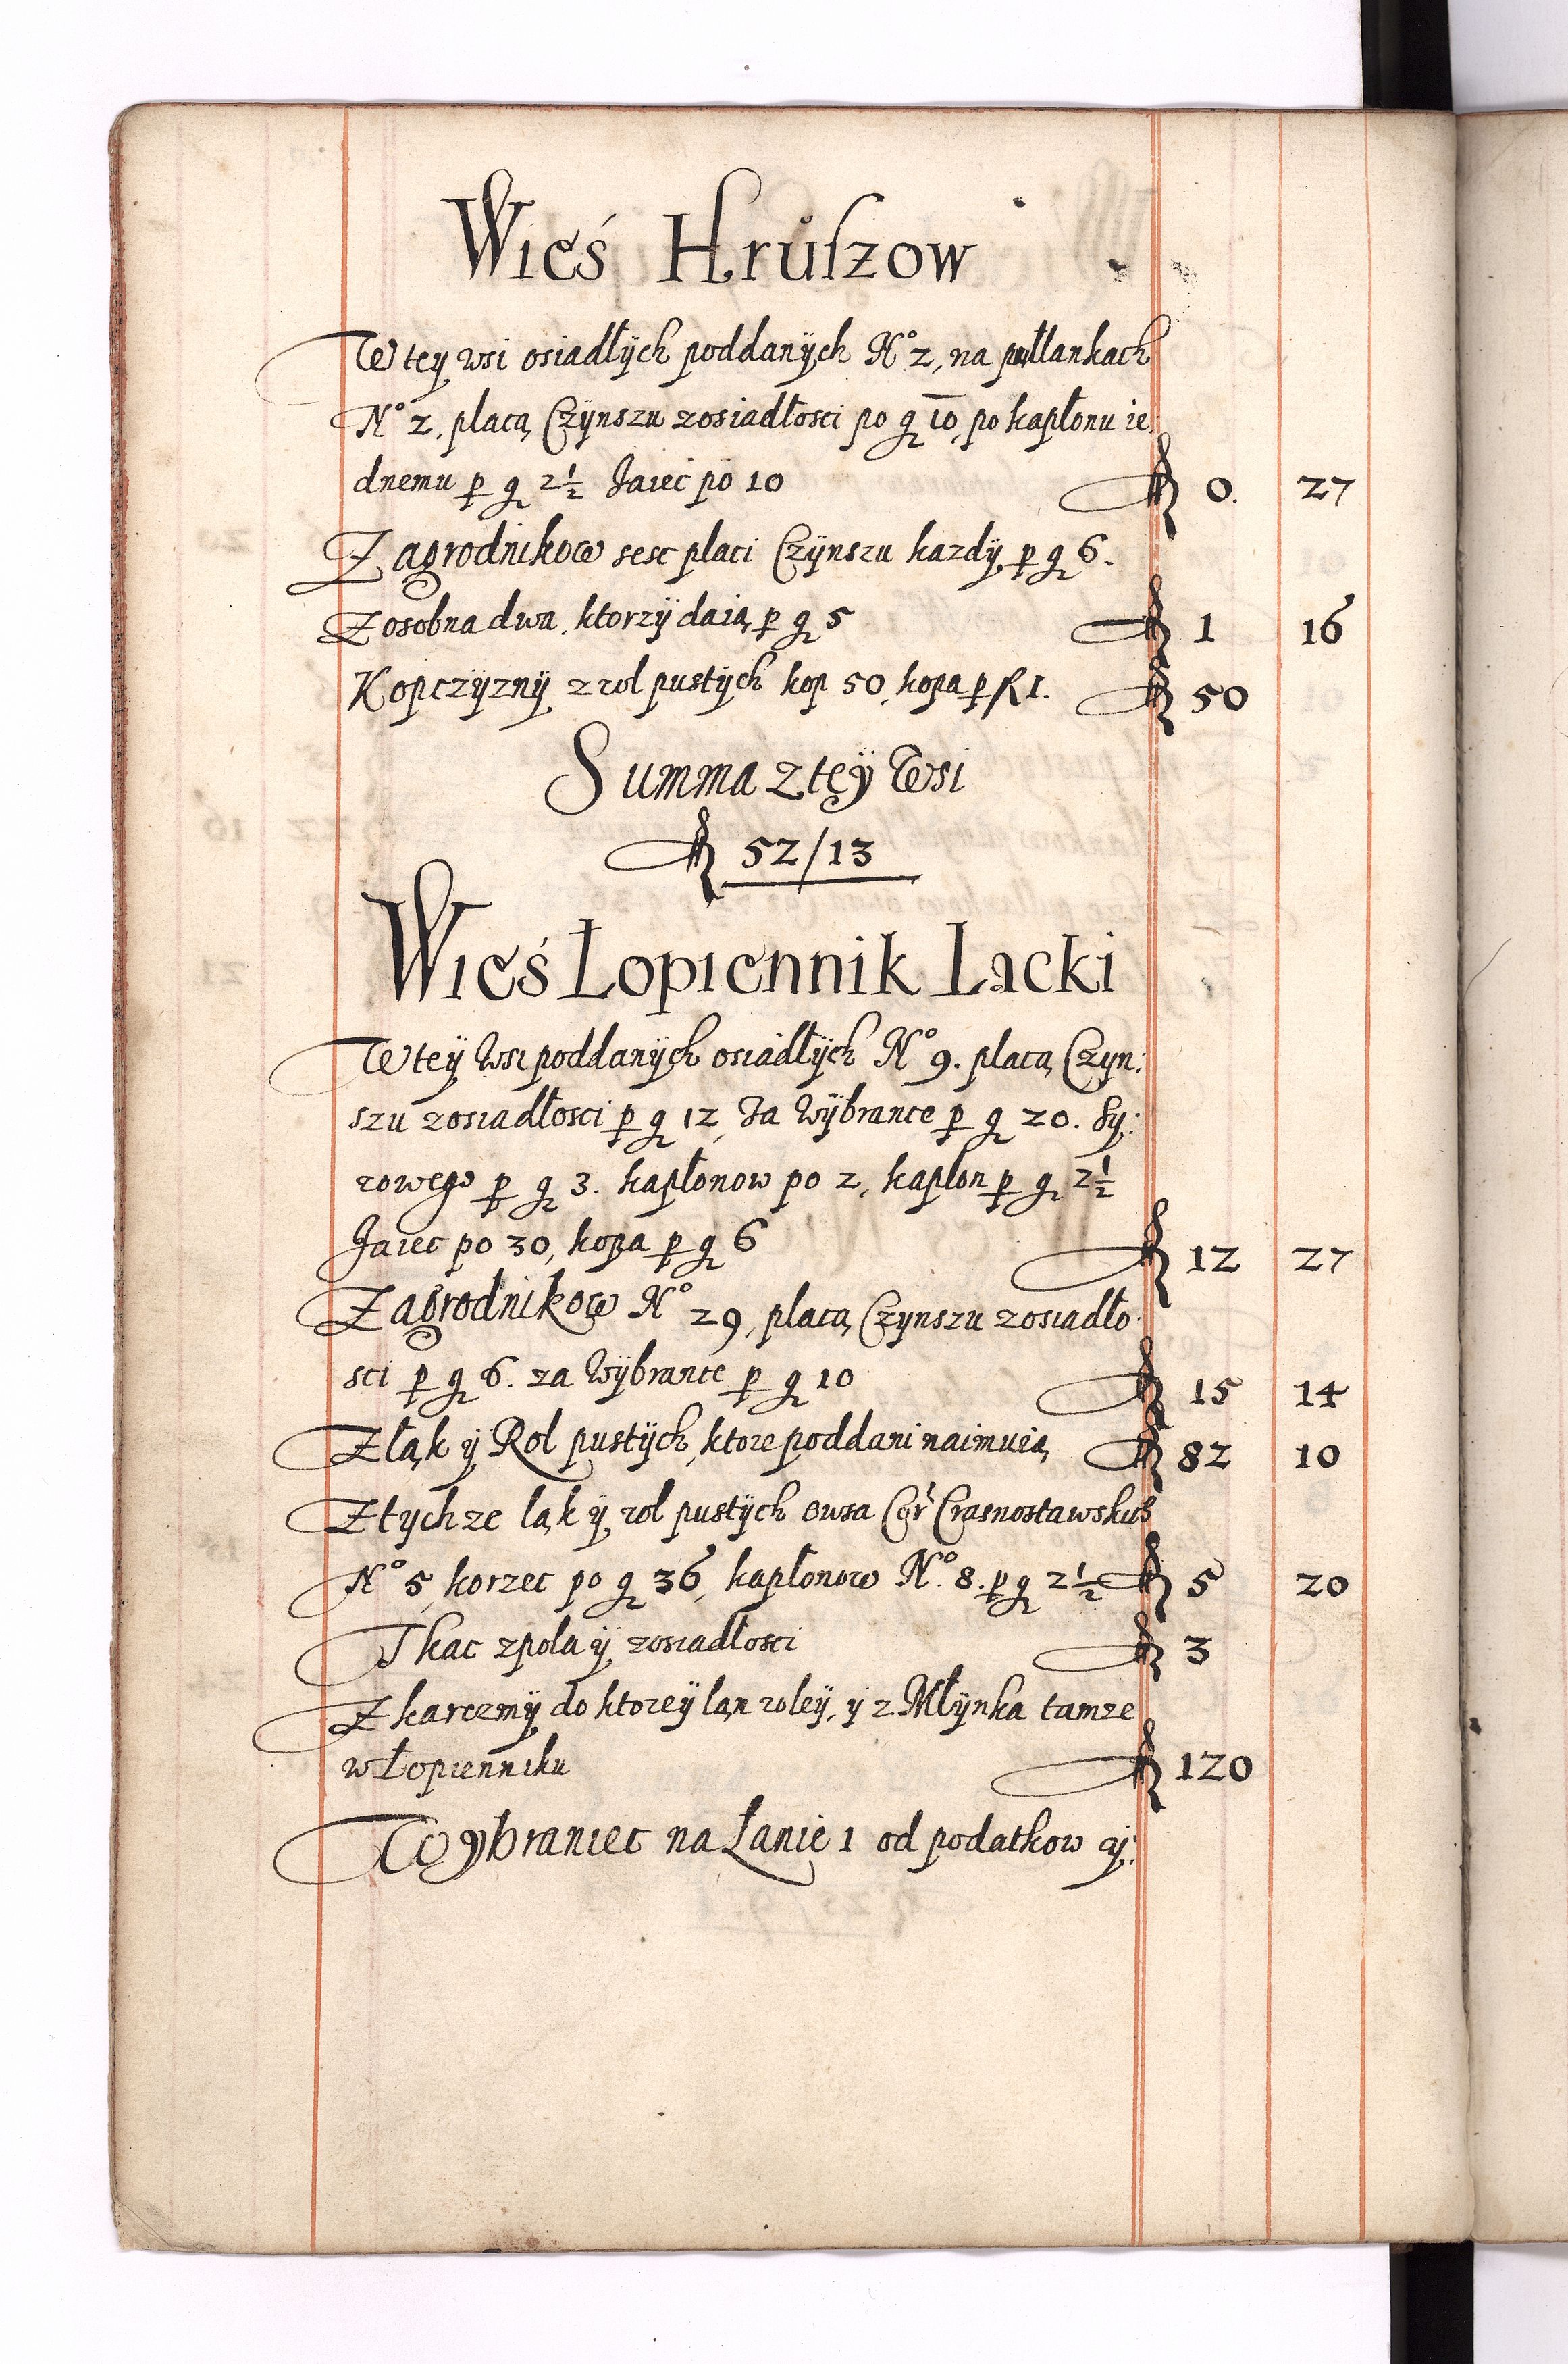 Wieś Hruſzow
W tey wsi osiadłÿch poddanÿch N° 2, na pułlankach
N° 2, placą Czÿnszu z osiadłosci po g 10, po kapłonu ie:
dnemu p g 2½ Jaiec po 10 fl 0. 27
Zagrodnikow sesc placi Czÿnszu kazdÿ p g 6.
Z osobna dwa, ktorzÿ daią p g 5 fl 1 16
Kopczÿznÿ z rol pustÿch kop 50, kopa p fl 1. fl 50
Summa z teÿ Wsi
fl 52/13
Wieś Łopiennik Lacki
W teÿ Wsi poddanÿch osiadłÿch N° 9. placą Czyn:
szu z osiadłosci p g 12, Za Wÿbrance p g 20. Sy:
rowego p g 3. kapłonow po 2, kapłon p g 2½
Jaiec po 30, kopa p g 6 fl 12 27
Zagrodnikow N° 29, placą Czynszu z osiadło:
sci p g 6. za Wÿbrance p g 10 fl 15 14
Z łąk ÿ Rol pustÿch, ktore poddani naimuią fl 82 10
Z tychze ląk ÿ rol pustÿch owsa Cor Crasnostawskich
N° 5, korzec po g 36, kapłonow N°. 8. p g 2½ fl 5 20
Tkac z pola ÿ z osiadłosci fl 3
Z karczmÿ do ktoreÿ łan roleÿ, ÿ z Młÿnka tamze
w Łopienniku fl 120
Wybraniec na Łanie 1 od podatkow